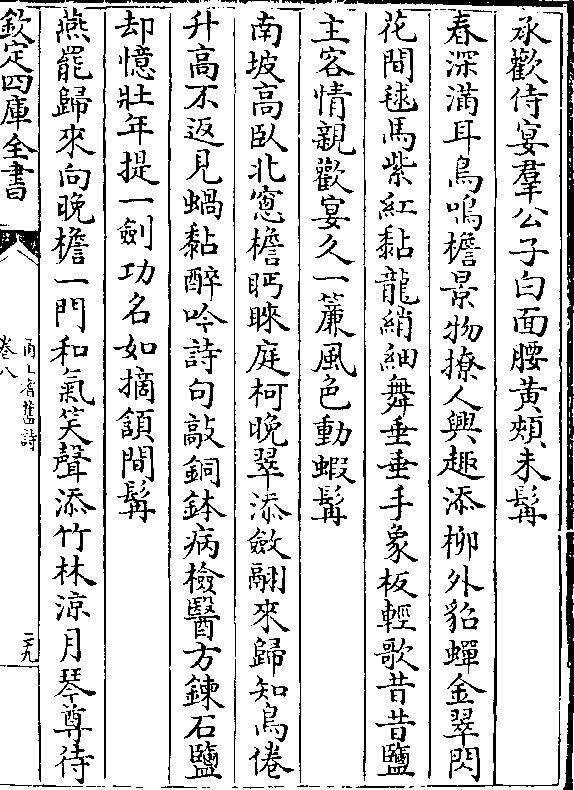 承歡侍宴羣公子白面腰黃頰未髯
春深滿耳鳥鳴檐景物撩人興趣添栁外貂蟬金翠閃
花間毬馬紫紅黏龍綃細舞垂垂手象板輕歌昔昔鹽
主客情親歡宴久一簾風色動蝦髯
南坡高臥北窻檐眄睞庭柯晚翠添斂翮來歸知鳥倦
升高不返見蝸黏醉吟詩句敲銅鉢病檢醫方鍊石鹽
却憶壯年提一劍功名如摘頷間髯
燕罷歸來向晚檐一門和氣笑聲添竹林涼月琴尊待
欽定四庫全書
甬上耆舊詩
卷八
二九